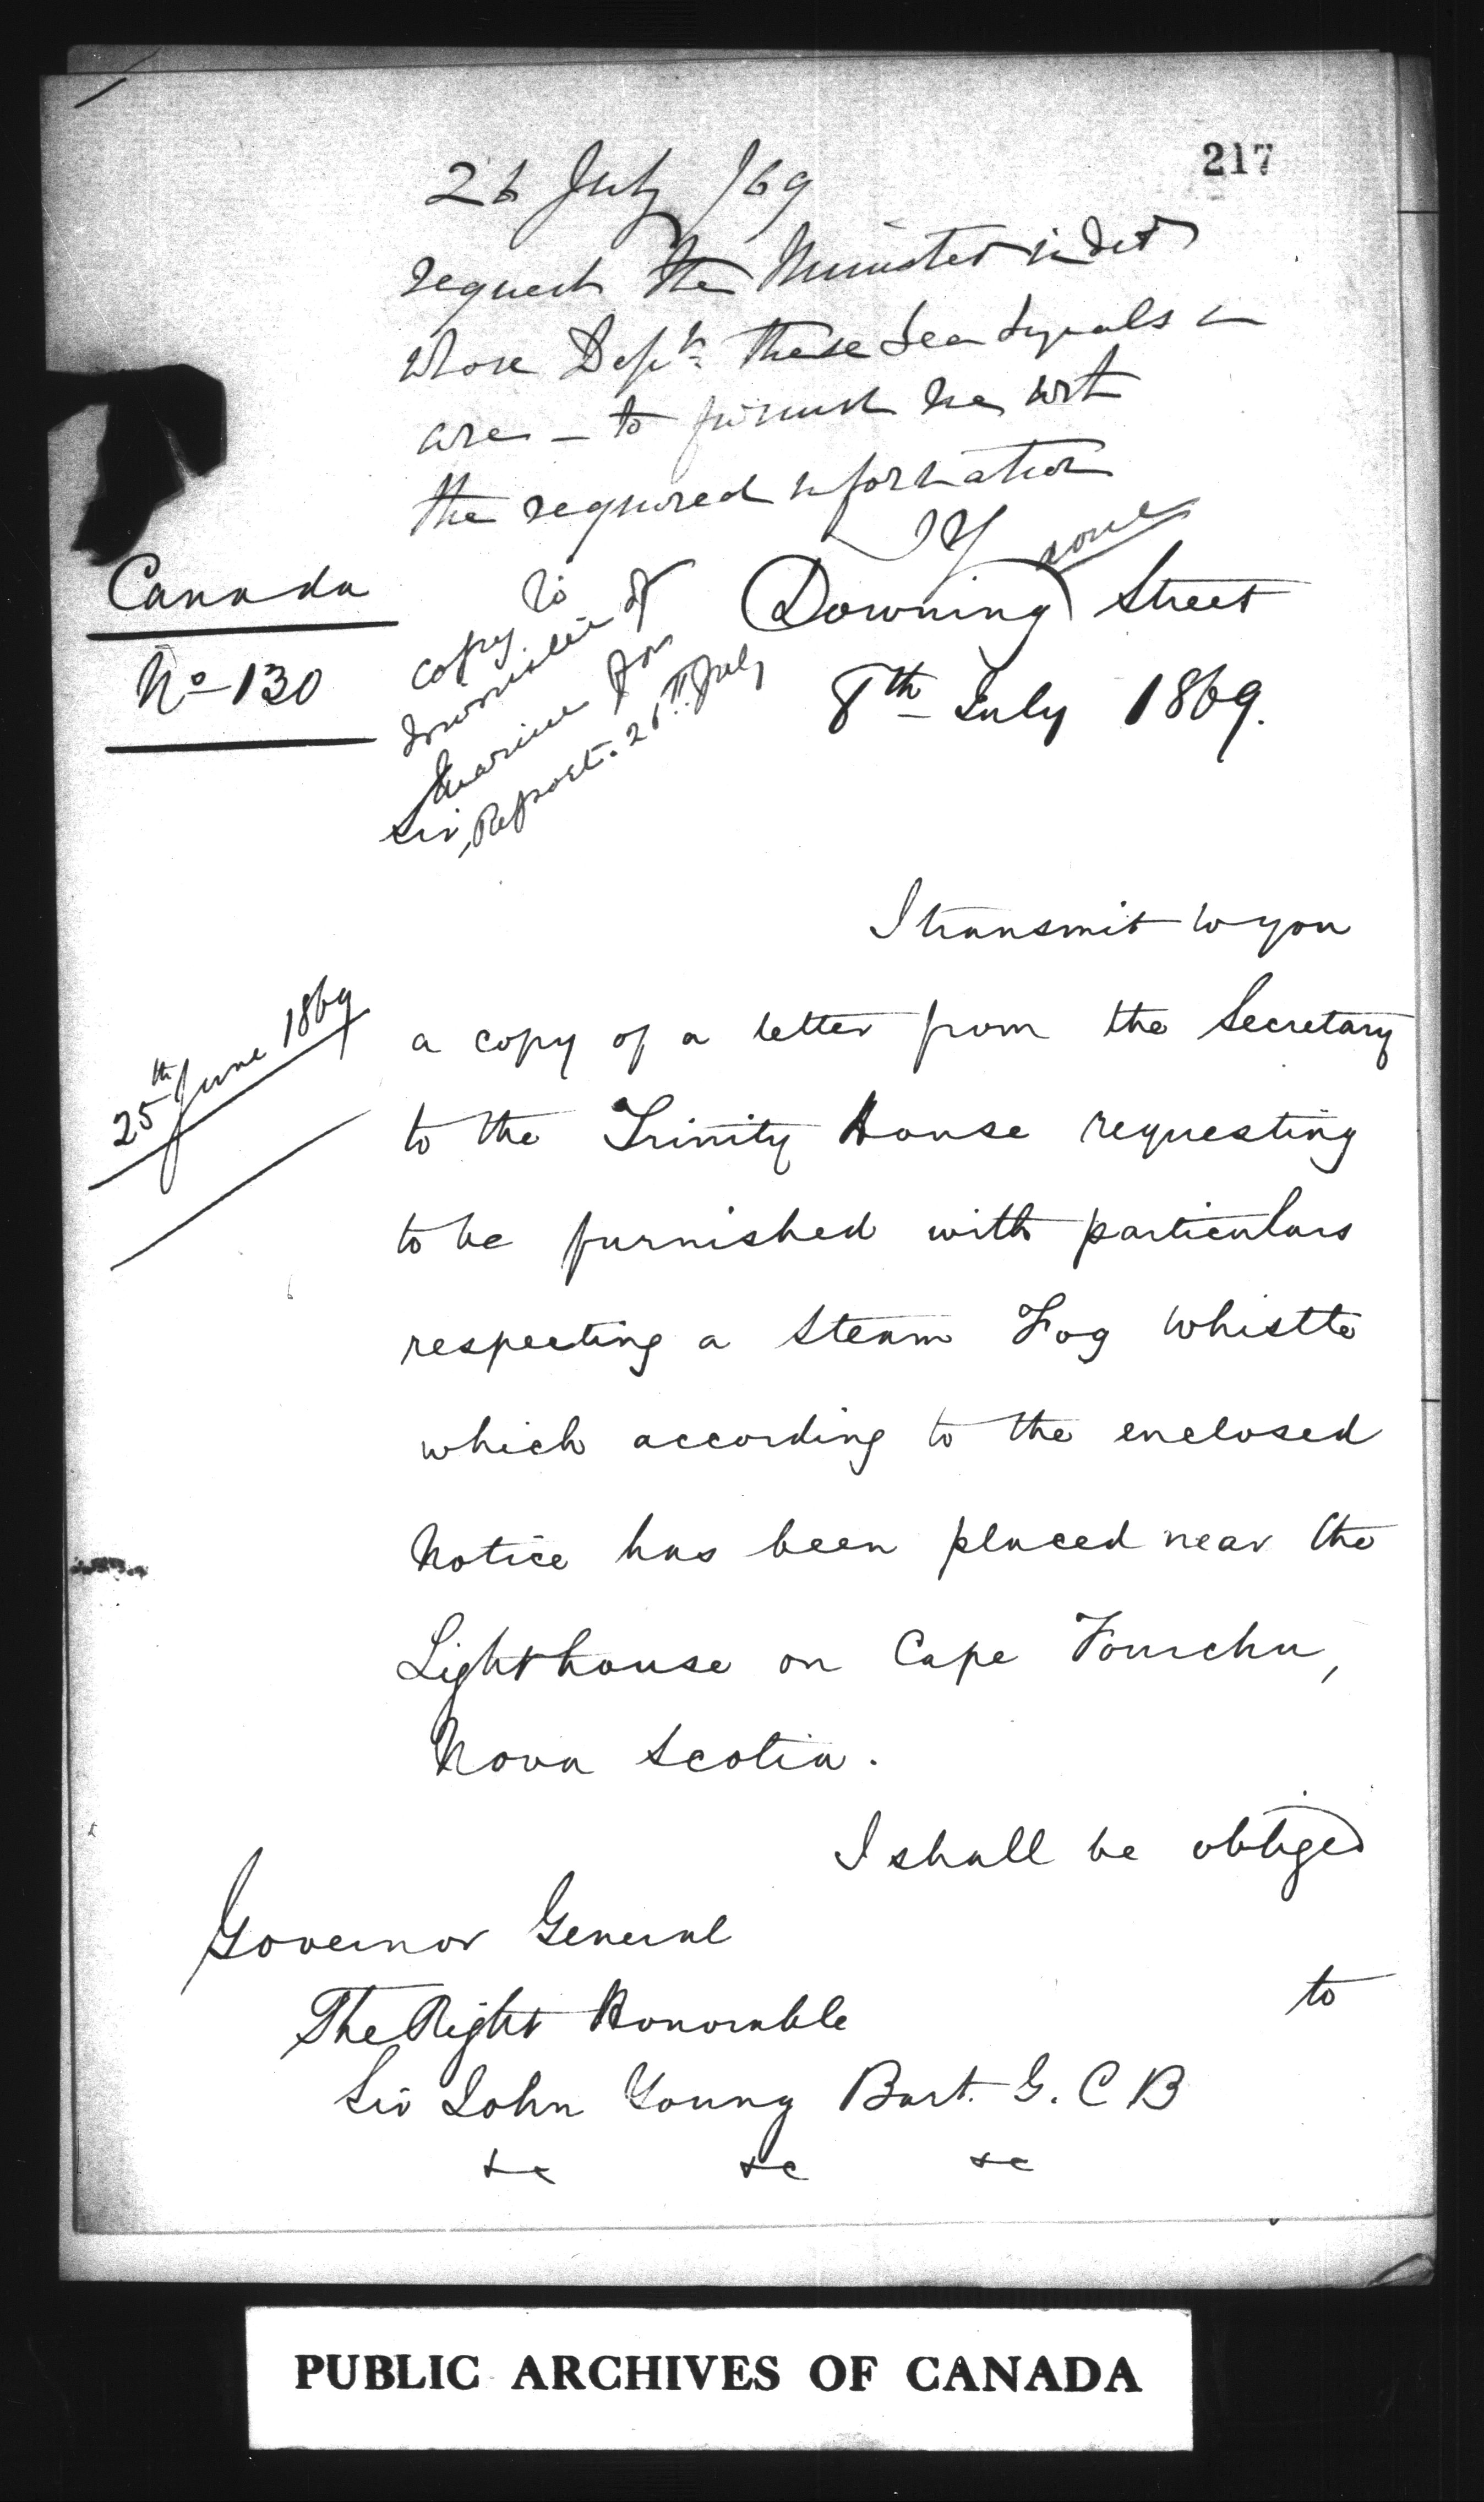 217
26 July /69
request the Minister under
whose Dept. these Sea Signals
are — to furnish me with
the required information
JY
done
Canada
No 130
Copy to
Minister of
Marine for
Report. 26th July
Downing Street
8th July 1869.
Sir,
I transmit to you
25th June 1869
a copy of a letter from the Secretary
to the Trinity House requesting
to be furnished with particulars
respecting a Steam Fog Whistle
which according to the enclosed
Notice has been placed near the
Lighthouse on Cape Fourchu,
Nova Scotia.
I shall be obliged
to
Governor General
The Right Honorable
Sir John Young Bart. G.C B
&c &c &c
PUBLIC ARCHIVES OF CANADA